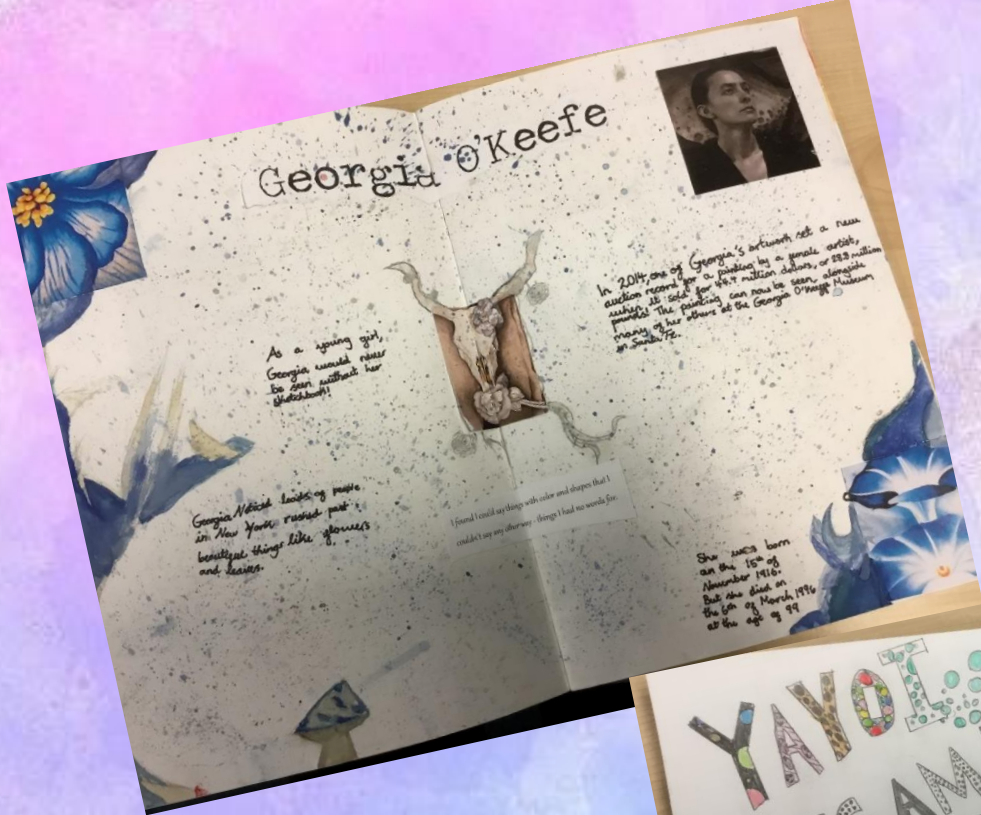 Georgia O'Keefe
As a young girl,
Georgia would never
be seen without her
sketchbook!
In 2014, one of Georgia's artwork set a new
auction record for a painting by a female artist,
when it sold for 44.4 million dollars, or 28.8 million
pounds! The painting can now be seen alongside
many of her others at the Georgia O'Keeffe Museum
in Santa Fe.
Georgia Noticed loads of people
in New York rushed past
beautiful things like flowers
and leaves.
I found I could say things with color and shapes that I
couldn't say any other way - things I had no words for.
She was born
on the 15th of
November 1916.
But she died on
the 6th of March 1996
at the age of 99
YAYOI